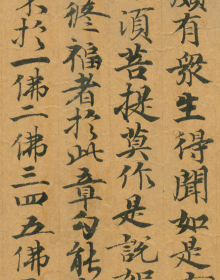 頗有衆生得聞如是
須菩提莫作是説如
修福者於此章句能
於一佛二佛三四五佛